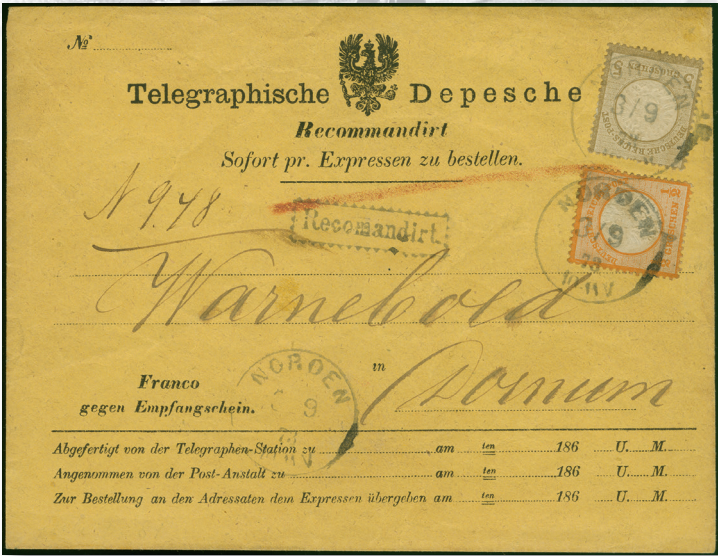 №
Telegraphische Depesche
Recommandirt
Sofort pr. Expressen zu bestellen.
N 948
Recomandirt.
5 GROSCHEN 5
DEUTSCHE REICHS-POST
NORDEN
3/9
1/2 GROSCHEN 1/2
NORDEN
3/9
73
Warnebold
in
Dornum
Franco
gegen Empfangschein.
NORDEN
9
Abgefertigt von der Telegraphen-Station zu am ten 186 U. M.
Angenommen von der Post-Anstalt zu am ten 186 U. M.
Zur Bestellung an den Adressaten dem Expressen übergeben am ten 186 U. M.